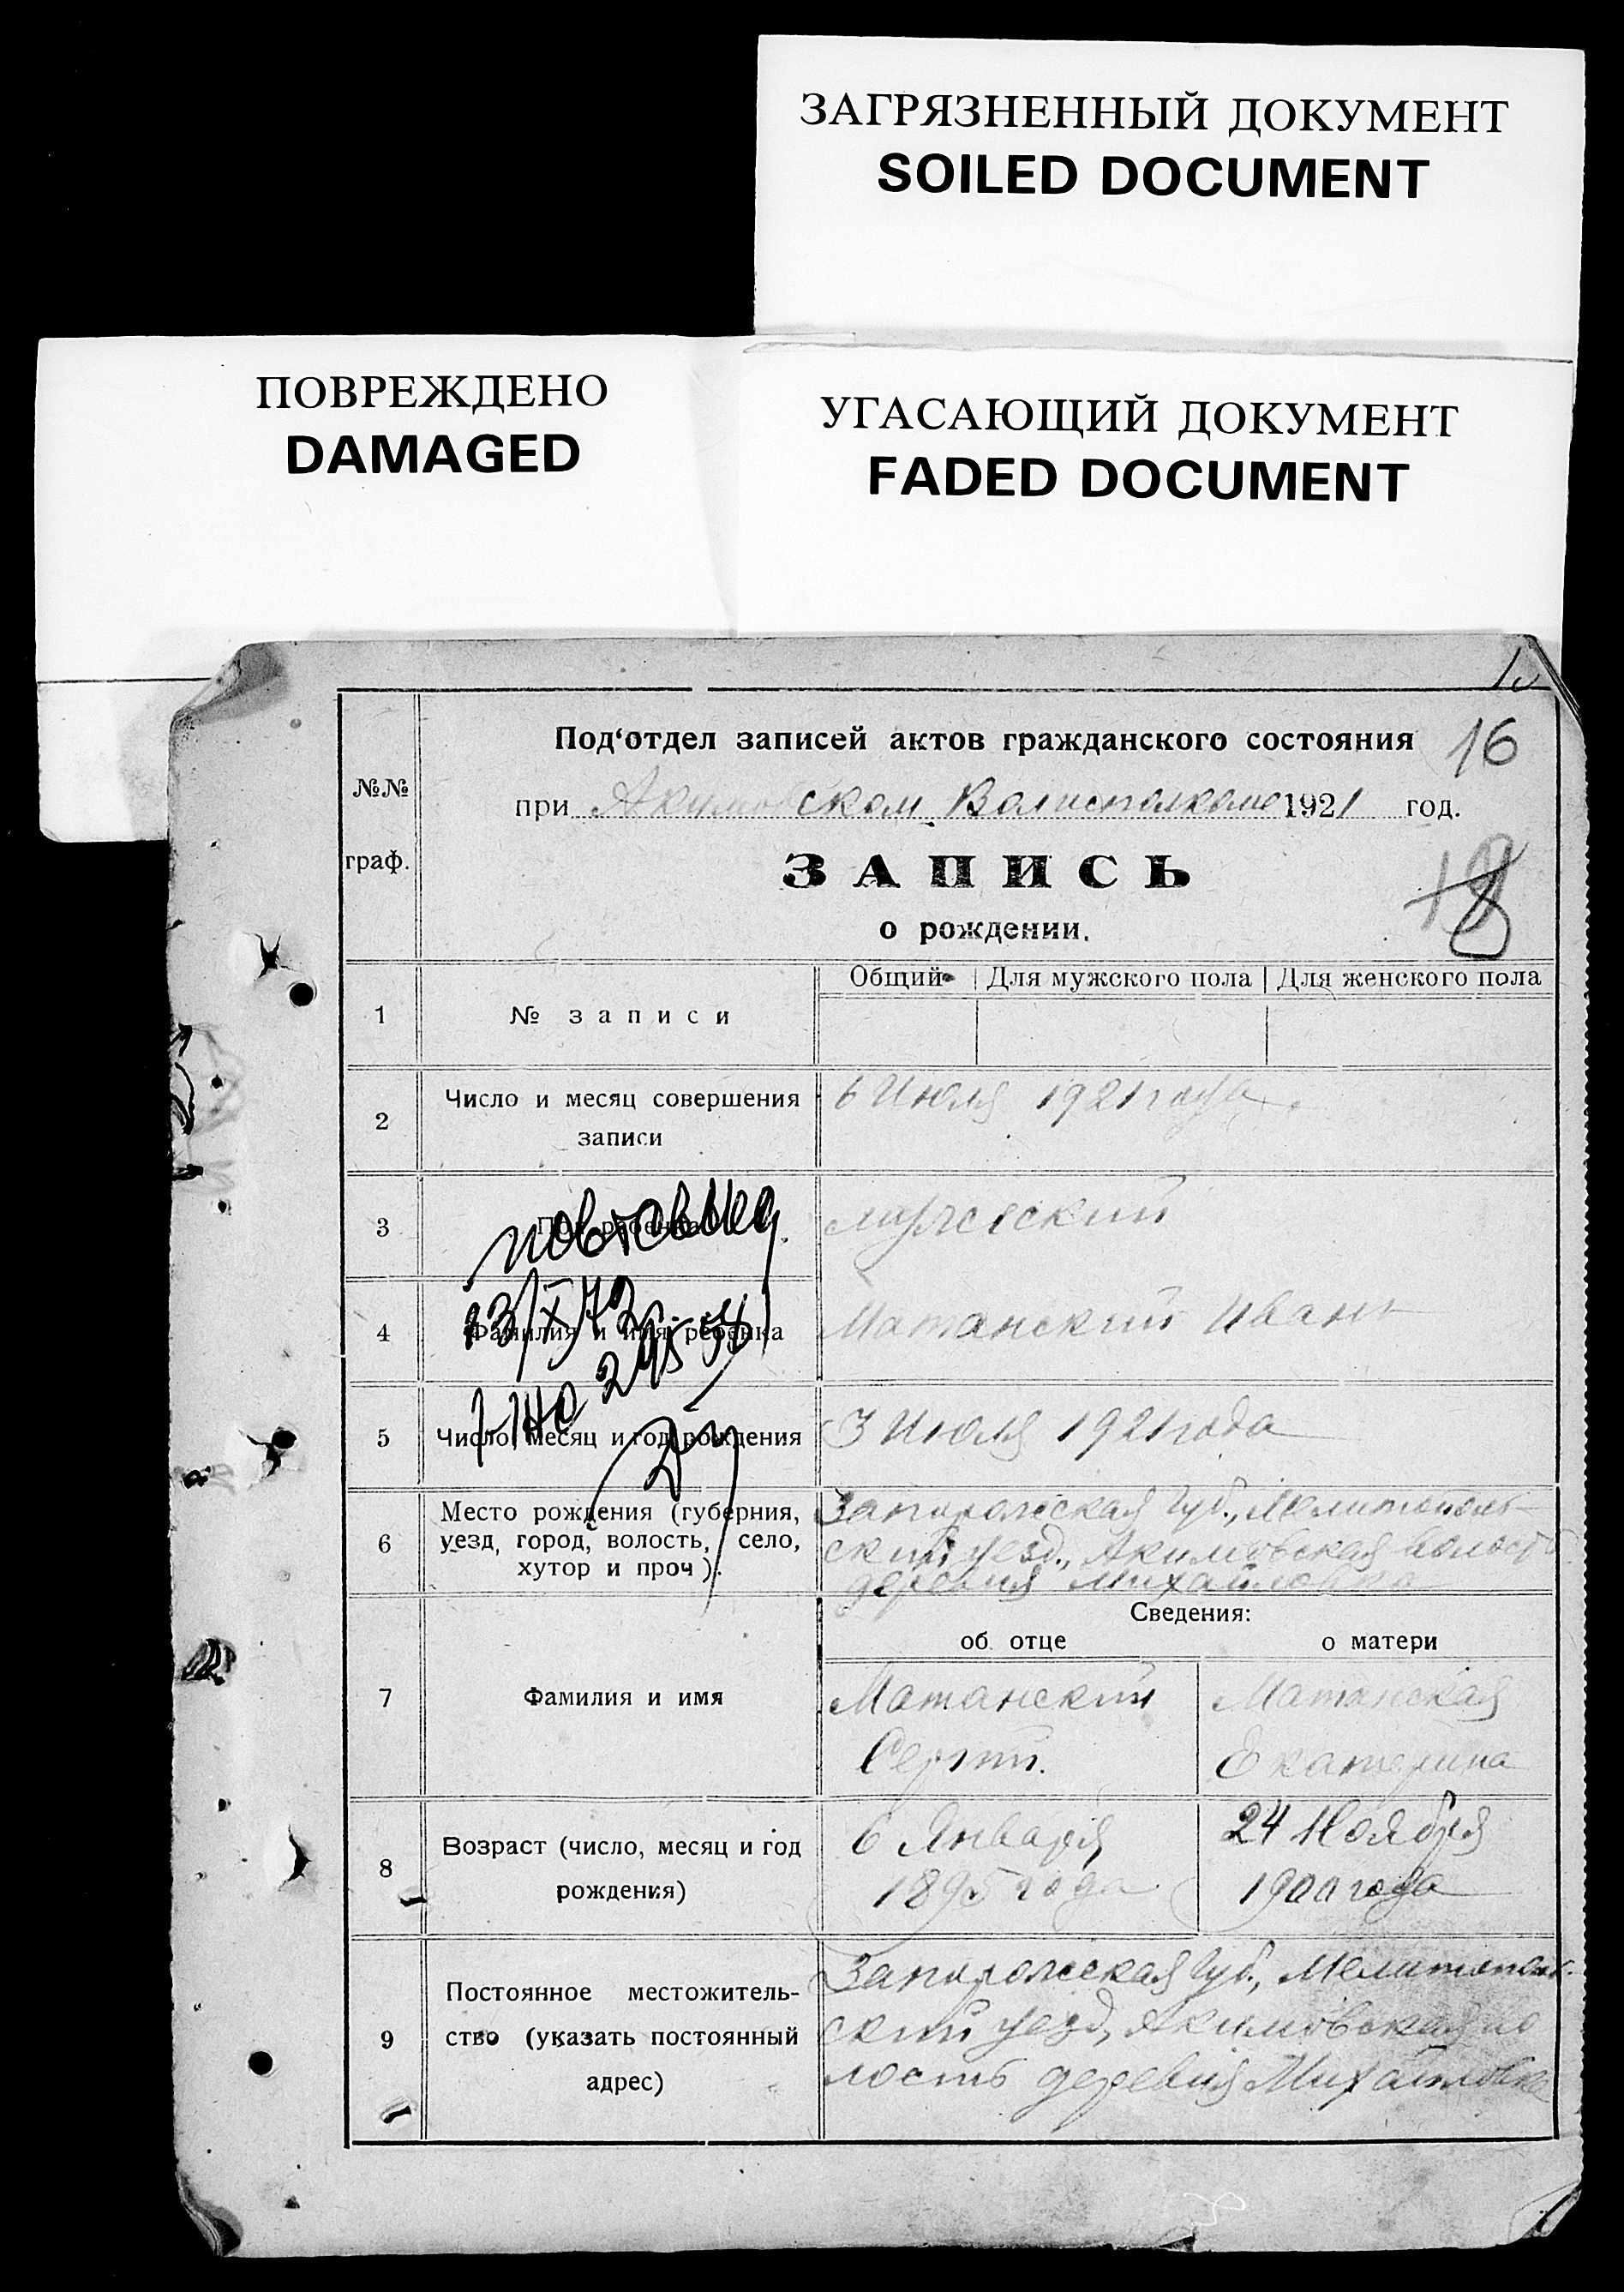 ЗАГРЯЗНЕННЫЙ ДОКУМЕНТ
SOILED DOCUMENT
ПОВРЕЖДЕНО
DAMAGED
УГАСАЮЩИЙ ДОКУМЕНТ
FADED DOCUMENT
№№ граф.
Под‘отдел записей актов гражданского состояния
16
при Акимовском Волисполкоме 1921 год.
ЗАПИСЬ
18
о рождении.
Общий Для мужского пола Для женского пола
1 № записи
2 Число и месяц совершения записи
6 Июля 1921 года.
3 Пол ребенка
мужеский
4 Фамилия и имя ребенка
Матанский Иван
5 Число, месяц и год рождения
3 Июля 1921 года
6 Место рождения (губерния,
уезд, город, волость, село,
хутор и проч.).
Запорожская Губ., Мелитополь-
ский уезд., Акимовская волость
деревня Михайловка
повторный
13/X 72
Сведения:
об отце о матери
7 Фамилия и имя
Матанский Матанская
Сергий. Екатерина
8 Возраст (число, месяц и год
рождения)
6 Января 24 Ноября
1895 года 1900 года
9 Постоянное местожитель-
ство (указать постоянный
адрес)
Запорожская Губ., Мелитополь-
ский уезд, Акимовская во
лость деревня Михайловка